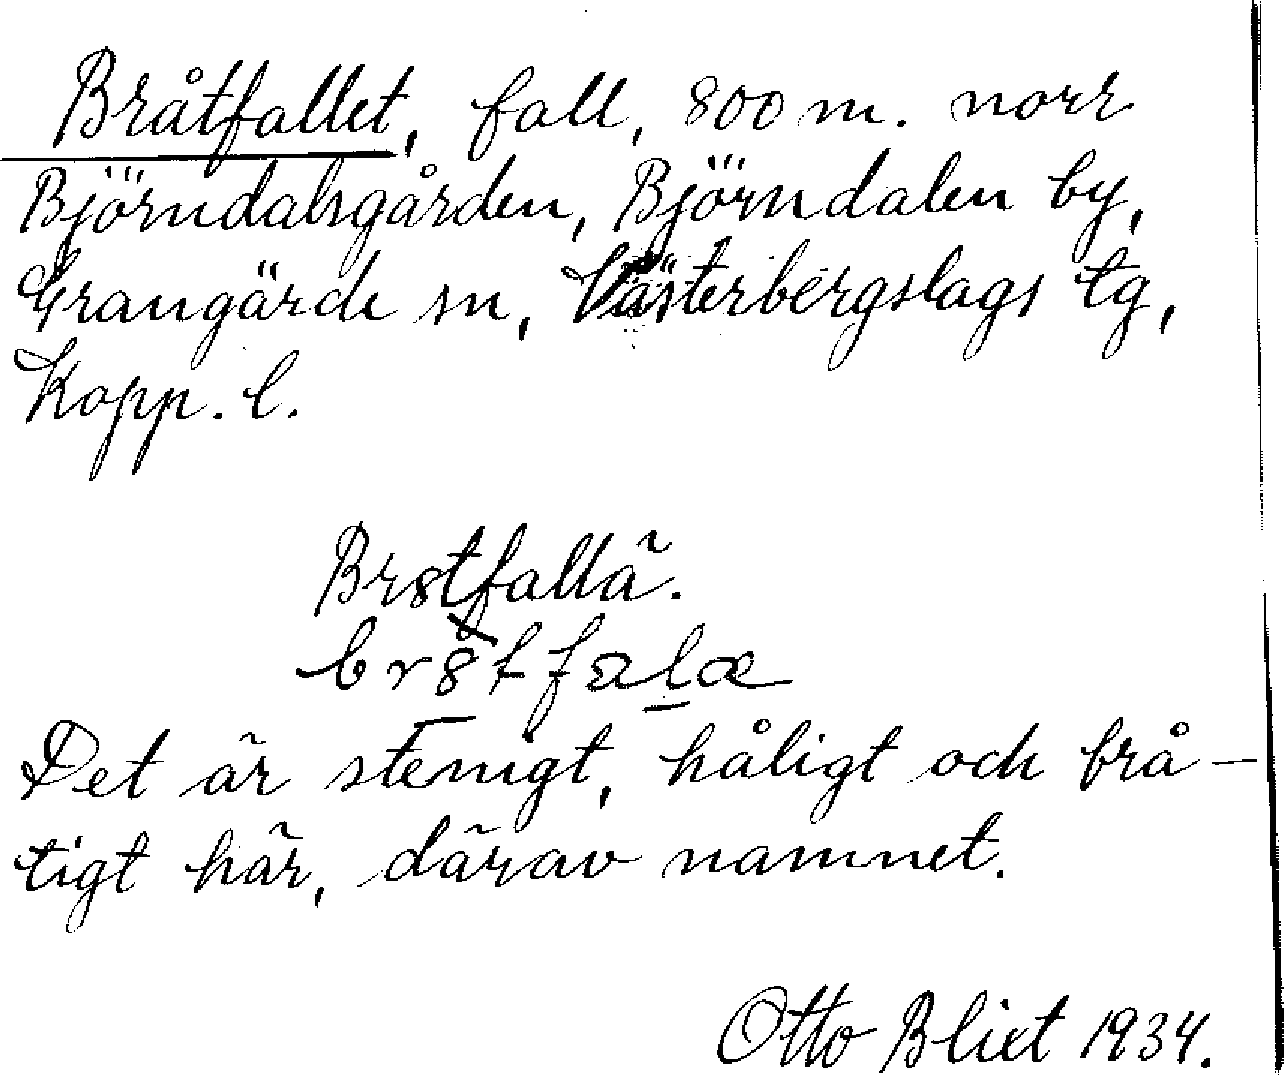 Bråtfallet, fall, 800 m. norr
Björndalsgården, Björndalen by,
Grangärde sn, Västerbergslags tg,
Kopp. l.
Br8tfallä.
br8tfala
Det är stenigt, håligt och brå-
tigt här, därav namnet.
Otto Blixt 1934.